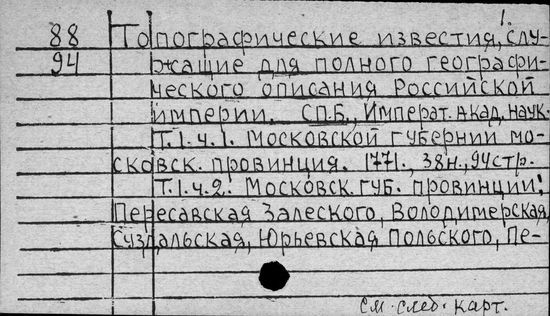 1.
88 Топографические известия, слу-
94 жащие для полного географи-
ческого описания Российской
империи. СП.Б., Императ. Акад. наук.
Т.1.ч.1. Московской губернии мо-
сковск. провинция. 1771., 38н., 94стр.
Т.1.ч.2. Московск. губ. провинции:
Пересавская Залеского, Володимерская,
Суздальская, Юрьевская Польского, Пе-
См. след. карт.